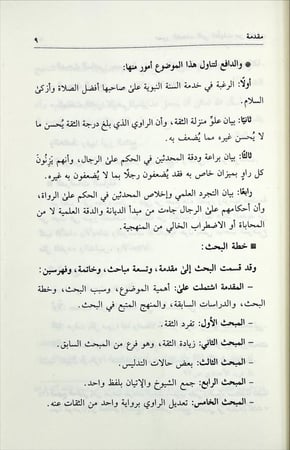 مقدمة ٩
● والدافع لتناول هذا الموضوع أمور منها:
أولًا: الرغبة في خدمة السنة النبوية على صاحبها أفضل الصلاة وأزكى
السلام.
ثانيًا: بيان علو منزلة الثقة، وأن الراوي الذي بلغ درجة الثقة يُحسن ما
لا يُحسن غيره مما يضعف به.
ثالثًا: بيان براعة ودقة المحدثين في الحكم على الرجال، وأنهم يَزِنُونَ
كل راوٍ بميزان خاص به فقد يُضعفون رجلًا بما لا يُضعفون به غيره.
رابعًا: بيان التجرد العلمي وإخلاص المحدثين في الحكم على الرواة،
وأن أحكامهم على الرجال جاءت من مبدأ الديانة والدقة العلمية لا من
المحاباة أو الاضطراب الخالي من المنهجية.
▪ خطة البحث:
وقد قسمت البحث إلى مقدمة، وتسعة مباحث، وخاتمة، وفهرسين:
– المقدمة اشتملت على: أهمية الموضوع، وسبب البحث، وخطة
البحث، والدراسات السابقة، والمنهج المتبع في البحث.
– المبحث الأول: تفرد الثقة.
– المبحث الثاني: زيادة الثقة، وهو فرع من المبحث السابق.
– المبحث الثالث: بعض حالات التدليس.
– المبحث الرابع: جمع الشيوخ والإتيان بلفظ واحد.
– المبحث الخامس: تعديل الراوي برواية واحد من الثقات عنه.